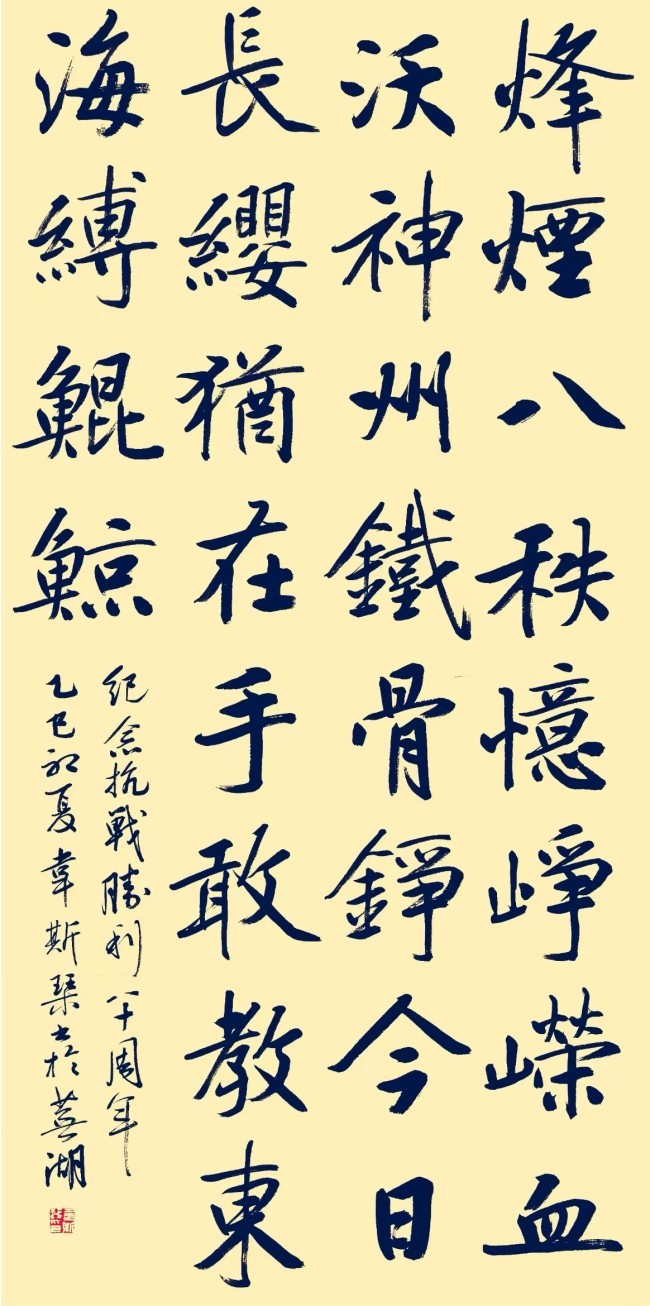 烽煙八秩憶崢嶸血
沃神州鐵骨錚今日
長纓猶在手敢教東
海縛鯤鯨
紀念抗戰勝利八十周年
乙巳初夏韋斯琹書於蕪湖